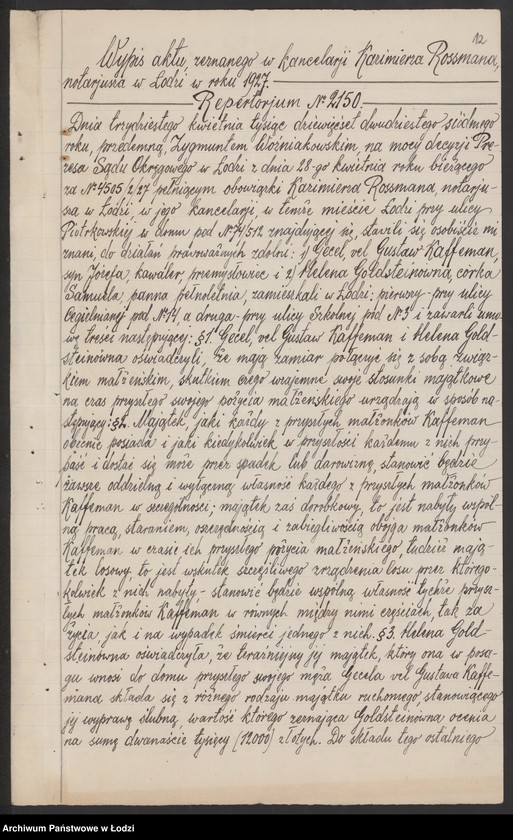 12
Wypis aktu, zeznanego w kancelarji Kazimierza Rossmana,
notarjusza w Łodzi w roku 1927.
Repertorjum № 2150.
Dnia trzydziestego kwietnia tysiąc dziewięćset dwudziestego siódmego
roku, przedemną, Zygmuntem Woźniakowskim, na mocy decyzji Pre-
zesa Sądu Okręgowego w Łodzi z dnia 28-go kwietnia roku bieżącego
za № 4505 z/27 pełniącym obowiązki Kazimierza Rossmana, notarju-
sza w Łodzi w jego kancelarji, w temże mieście Łodzi przy ulicy
Piotrkowskiej w domu pod № 74/512 znajdującej się, stawili się osobiście mi
znani, do działań prawnoważnych zdolni: 1) Gecel, vel Gustaw Kaffeman,
syn Józefa, kawaler, przemysłowiec i 2) Helena Goldsteinówna, córka
Samuela, panna pełnoletnia, zamieszkali w Łodzi: pierwszy- przy ulicy
Cegielnianej pod № 14, a druga- przy ulicy Szkolnej pod № 5 i zawarli umo-
wę treści następującej: §1. Gecel, vel Gustaw Kaffeman i Helena Gold-
steinówna oświadczyli, że mają zamiar połączyć się z sobą związ-
kiem małżeńskim, skutkiem czego wzajemne swoje stosunki majątkowe
na czas przyszłego swojego pożycia małżeńskiego urządzają w sposób na-
stępujący: §2. Majątek, jaki każdy z przyszłych małżonków Kaffeman
obecnie posiada i jaki kiedykolwiek w przyszłości każdemu z nich przy-
paść i dostać się może przez spadek lub darowiznę, stanowić będzie
zawsze oddzielną i wyłączną własność każdego z przyszłych małżonków
Kaffeman w szczególności; majątek zaś dorobkowy, to jest nabyty wspól-
ną pracą, staraniem, oszczędnością i zabiegliwością obojga małżonków
Kaffeman w czasie ich przyszłego pożycia małżeńskiego, tudzież mają-
tek losowy, to jest wskutek szczęśliwego zrządzenia losu przez którego-
kolwiek z nich nabyty- stanowić będzie wspólną własność tychże przysz-
łych małżonków Kaffeman w równych między nimi częściach, tak za
życia, jak i na wypadek śmierci jednego z nich. §3. Helena Gold-
steinówna oświadczyła, że teraźniejszy jej majątek, który ona w posa-
gu wnosi do domu przyszłego swojego męża Gecela vel Gustawa Kaffe-
mana składa się z różnego rodzaju majątku ruchomego, stanowiącego
jej wyprawę ślubną, wartość którego zeznająca Goldsteinówna ocenia
na sumę dwanaście tysięcy (12000) złotych. Do składu tego ostatniego
Archiwum Państwowe w Łodzi